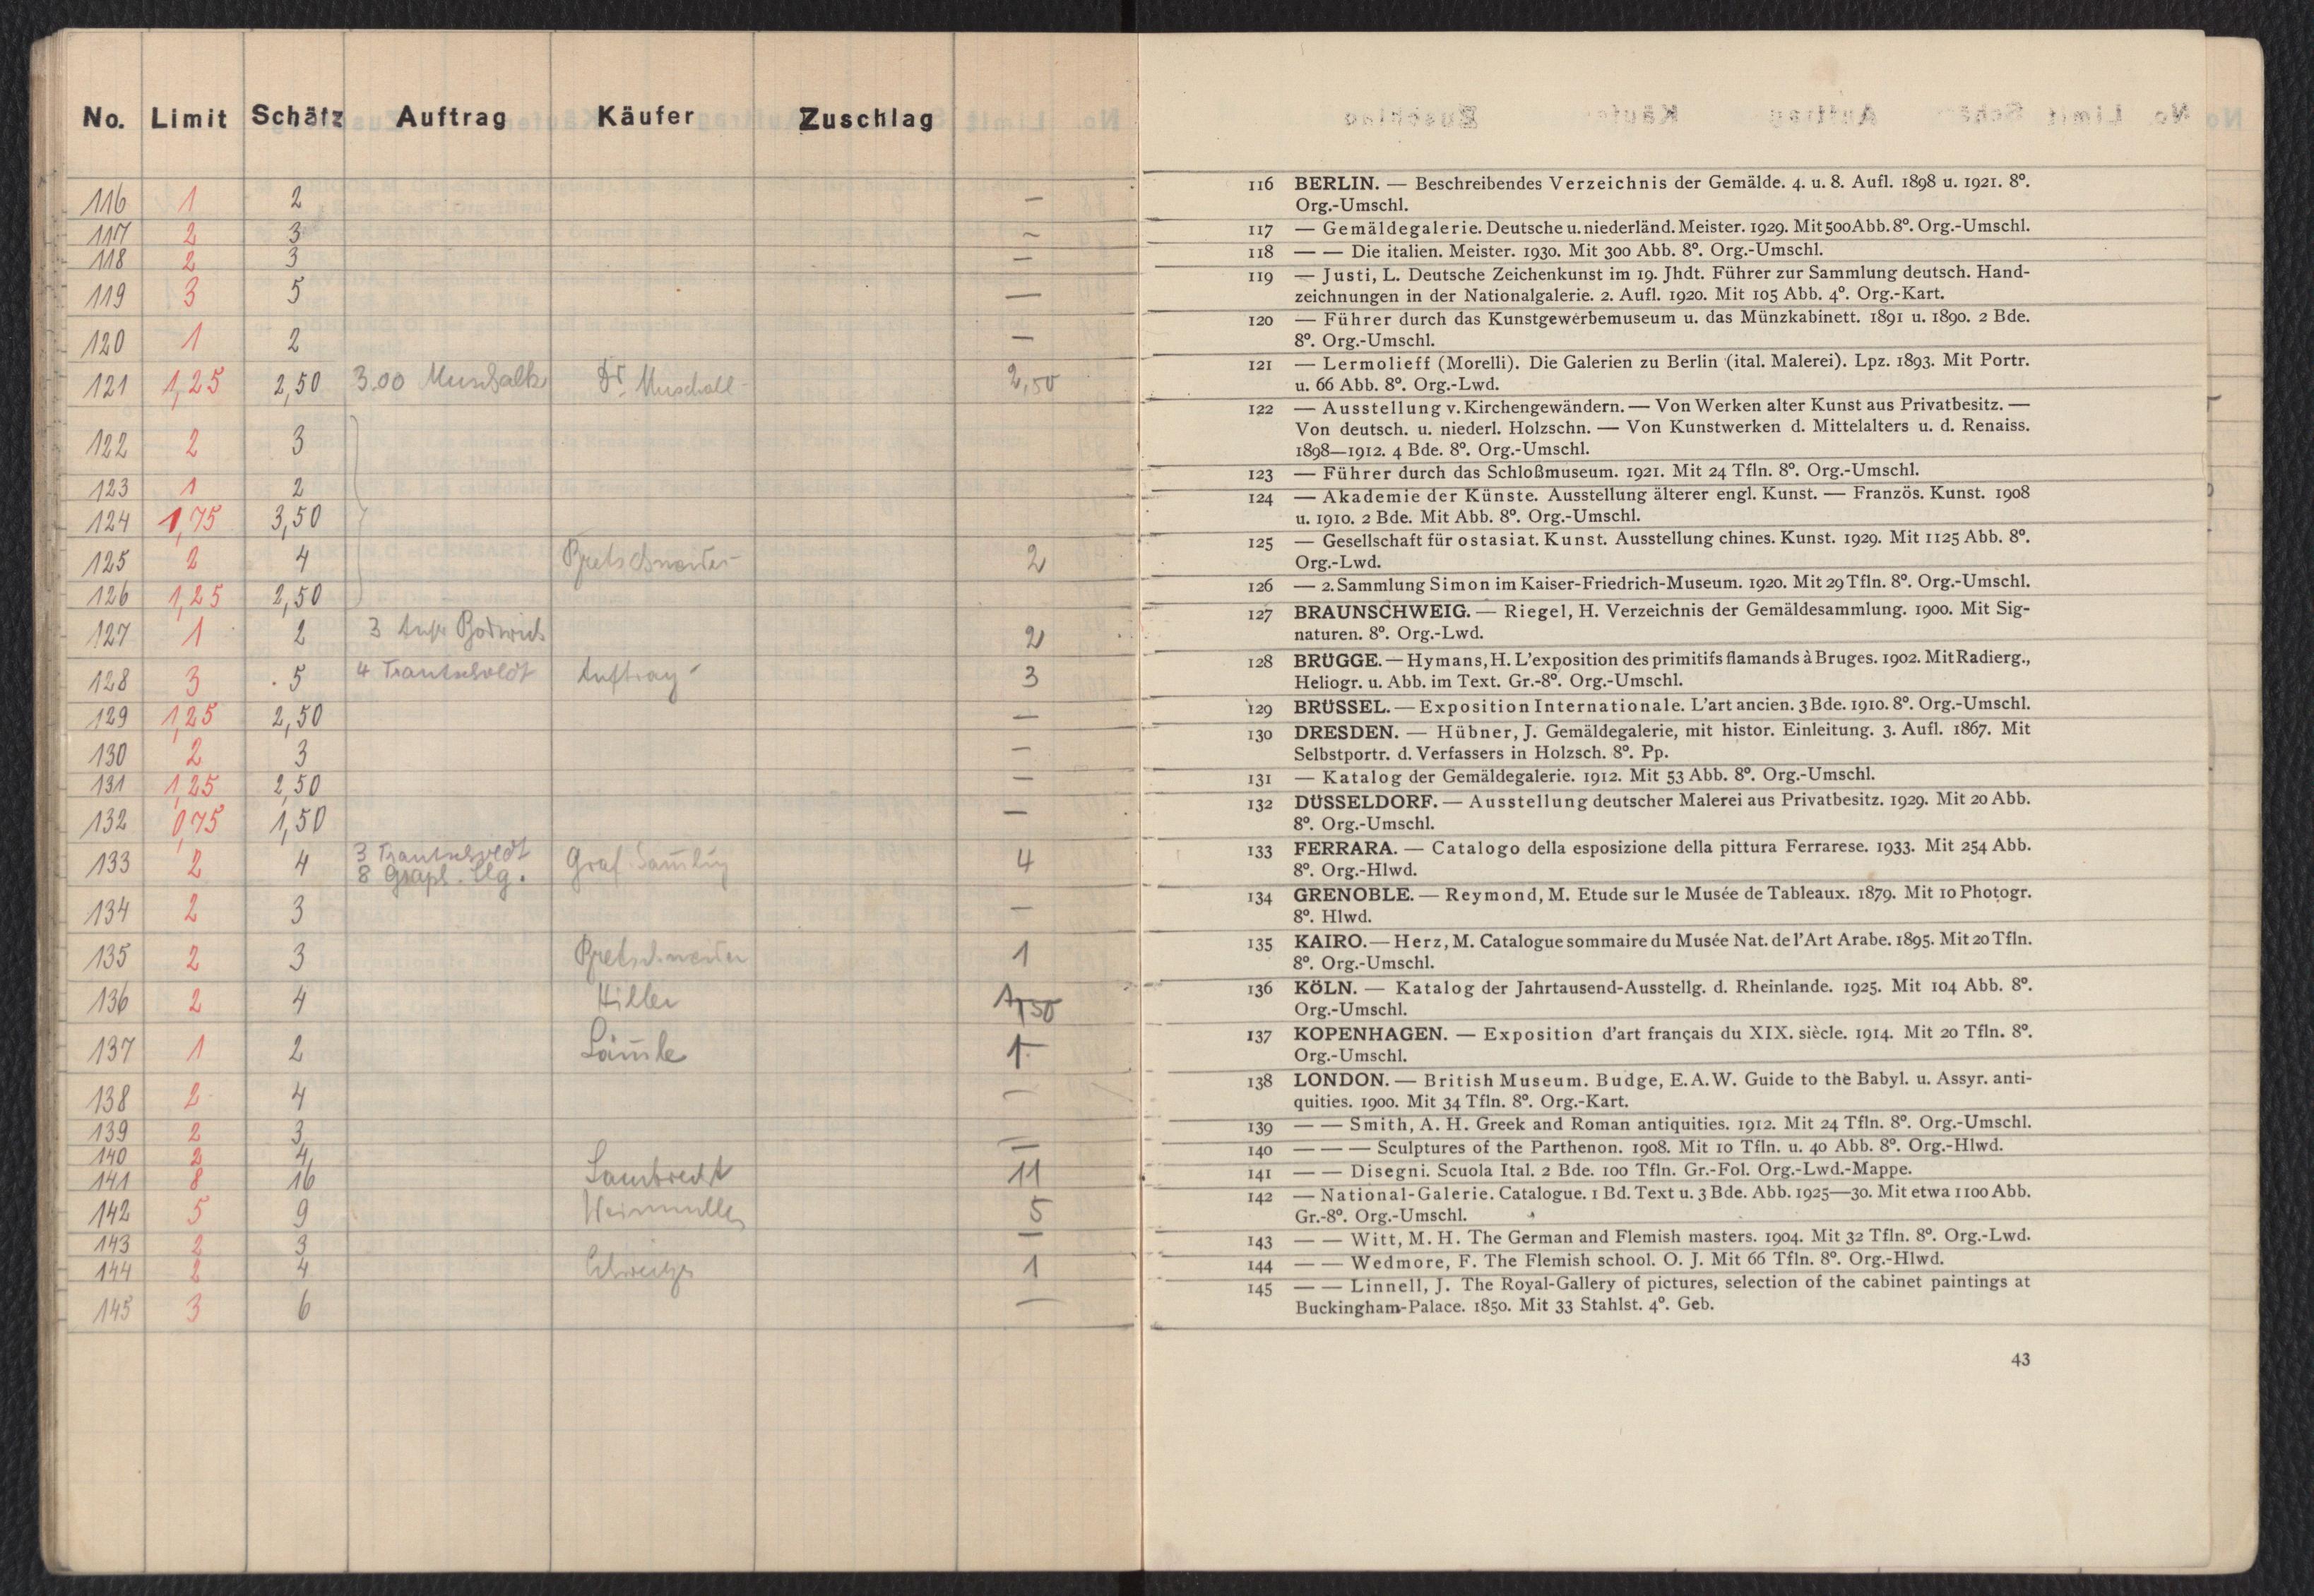 No. Limit Schätz Auftrag Käufer Zuschlag
116 1 2 —
117 2 3 —
118 2 3 —
119 3 5 —
120 1 2 —
121 1,25 2,50 3.00 Muschalk Dr. Muschall 2,50
122 2 3
123 1 2
124 1,75 3,50
125 2 4 Bretschneider 2
126 1,25 2,50
127 1 2 3 2
128 3 5 4 Trautscholdt Auftrag 3
129 1,25 2,50 —
130 2 3 —
131 1,25 2,50 —
132 0,75 1,50 —
133 2 4 3 Trautscholdt Graf. Sammlung 4
8 Graph. Slg.
134 2 3 —
135 2 3 Bretschneider 1
136 2 4 Hiller 1,50
137 1 2 Lämle 1.—
138 2 4 —
139 2 3 —
140 2 4 —
141 8 16 Lambrecht 11
142 5 9 Weinmüller 5
143 2 3 —
144 2 4 1
145 3 6 —
116 BERLIN. — Beschreibendes Verzeichnis der Gemälde. 4. u. 8. Aufl. 1898 u. 1921. 8°.
Org.-Umschl.
117 — Gemäldegalerie. Deutsche u. niederländ. Meister. 1929. Mit 500 Abb. 8°. Org.-Umschl.
118 — — Die italien. Meister. 1930. Mit 300 Abb. 8°. Org.-Umschl.
119 — Justi, L. Deutsche Zeichenkunst im 19. Jhdt. Führer zur Sammlung deutsch. Hand-
zeichnungen in der Nationalgalerie. 2. Aufl. 1920. Mit 105 Abb. 4°. Org.-Kart.
120 — Führer durch das Kunstgewerbemuseum u. das Münzkabinett. 1891 u. 1890. 2 Bde.
8°. Org.-Umschl.
121 — Lermolieff (Morelli). Die Galerien zu Berlin (ital. Malerei). Lpz. 1893. Mit Portr.
u. 66 Abb. 8°. Org.-Lwd.
122 — Ausstellung v. Kirchengewändern. — Von Werken alter Kunst aus Privatbesitz. —
Von deutsch. u. niederl. Holzschn. — Von Kunstwerken d. Mittelalters u. d. Renaiss.
1898—1912. 4 Bde. 8°. Org.-Umschl.
123 — Führer durch das Schloßmuseum. 1921. Mit 24 Tfln. 8°. Org.-Umschl.
124 — Akademie der Künste. Ausstellung älterer engl. Kunst. — Französ. Kunst. 1908
u. 1910. 2 Bde. Mit Abb. 8°. Org.-Umschl.
125 — Gesellschaft für ostasiat. Kunst. Ausstellung chines. Kunst. 1929. Mit 1125 Abb. 8°.
Org.-Lwd.
126 — 2. Sammlung Simon im Kaiser-Friedrich-Museum. 1920. Mit 29 Tfln. 8°. Org.-Umschl.
127 BRAUNSCHWEIG. — Riegel, H. Verzeichnis der Gemäldesammlung. 1900. Mit Sig-
naturen. 8°. Org.-Lwd.
128 BRÜGGE. — Hymans, H. L'exposition des primitifs flamands à Bruges. 1902. Mit Radierg.,
Heliogr. u. Abb. im Text. Gr.-8°. Org.-Umschl.
129 BRÜSSEL. — Exposition Internationale. L'art ancien. 3 Bde. 1910. 8°. Org.-Umschl.
130 DRESDEN. — Hübner, J. Gemäldegalerie, mit histor. Einleitung. 3. Aufl. 1867. Mit
Selbstportr. d. Verfassers in Holzsch. 8°. Pp.
131 — Katalog der Gemäldegalerie. 1912. Mit 53 Abb. 8°. Org.-Umschl.
132 DÜSSELDORF. — Ausstellung deutscher Malerei aus Privatbesitz. 1929. Mit 20 Abb.
8°. Org.-Umschl.
133 FERRARA. — Catalogo della esposizione della pittura Ferrarese. 1933. Mit 254 Abb.
8°. Org.-Hlwd.
134 GRENOBLE. — Reymond, M. Etude sur le Musée de Tableaux. 1879. Mit 10 Photogr.
8°. Hlwd.
135 KAIRO. — Herz, M. Catalogue sommaire du Musée Nat. de l'Art Arabe. 1895. Mit 20 Tfln.
8°. Org.-Umschl.
136 KÖLN. — Katalog der Jahrtausend-Ausstellg. d. Rheinlande. 1925. Mit 104 Abb. 8°.
Org.-Umschl.
137 KOPENHAGEN. — Exposition d'art français du XIX. siècle. 1914. Mit 20 Tfln. 8°.
Org.-Umschl.
138 LONDON. — British Museum. Budge, E. A. W. Guide to the Babyl. u. Assyr. anti-
quities. 1900. Mit 34 Tfln. 8°. Org.-Kart.
139 — — Smith, A. H. Greek and Roman antiquities. 1912. Mit 24 Tfln. 8°. Org.-Umschl.
140 — — — Sculptures of the Parthenon. 1908. Mit 10 Tfln. u. 40 Abb. 8°. Org.-Hlwd.
141 — — Disegni. Scuola Ital. 2 Bde. 100 Tfln. Gr.-Fol. Org.-Lwd.-Mappe.
142 — National-Galerie. Catalogue. 1 Bd. Text u. 3 Bde. Abb. 1925—30. Mit etwa 1100 Abb.
Gr.-8°. Org.-Umschl.
143 — — Witt, M. H. The German and Flemish masters. 1904. Mit 32 Tfln. 8°. Org.-Lwd.
144 — — Wedmore, F. The Flemish school. O. J. Mit 66 Tfln. 8°. Org.-Hlwd.
145 — — Linnell, J. The Royal-Gallery of pictures, selection of the cabinet paintings at
Buckingham-Palace. 1850. Mit 33 Stahlst. 4°. Geb.
43